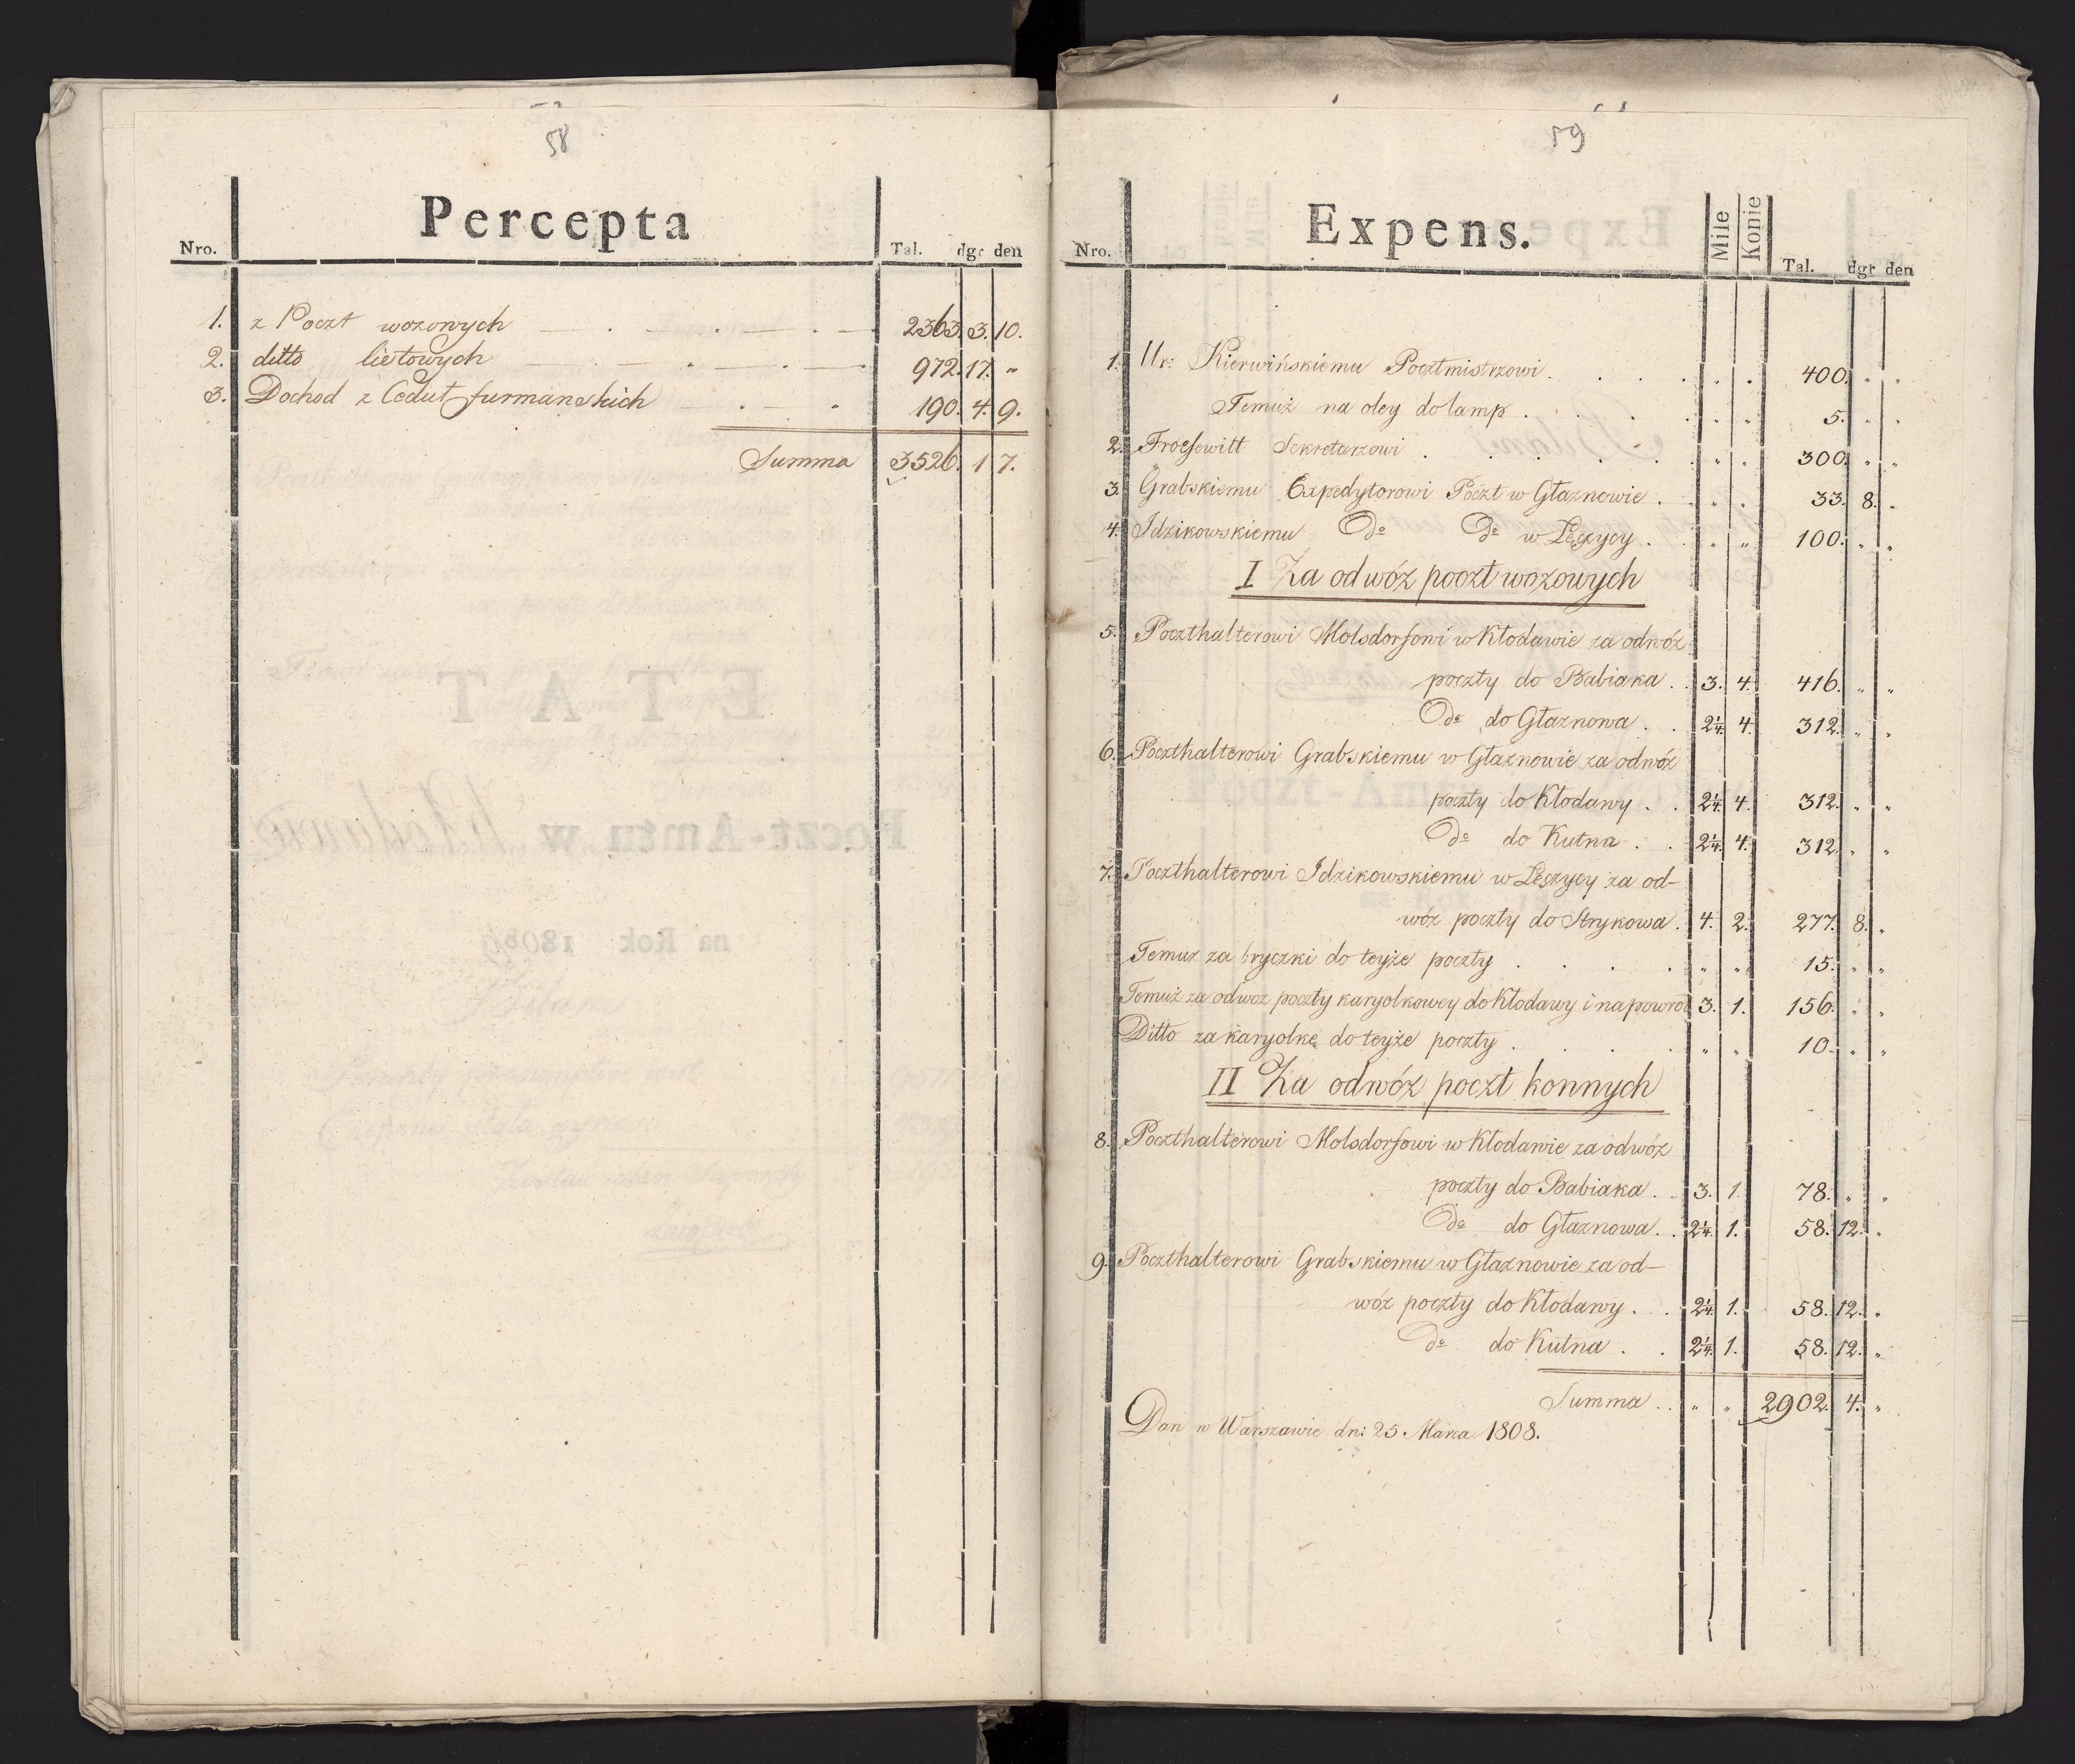 58
Percepta
Nro. Tal. dgr den
1. z Poczt wozowych 2363. 3. 10.
2. ditto listowych 972. 17. "
3. Dochod z Cedut furmanskich 190. 4. 9.
Summa 3526. 1 7.
59
Expens.
Nro. Mile Konie Tal. dgr den
1. Ur: Kierwińskiemu Pocztmistrzowi . . . . " . 400. " "
Temuż na oley do lamp . . . . " " 5. " "
2. Sekretarzowi . . . . . " " 300. " "
3. Grabskiemu Expedytorowi Poczt w Głaznowie . " " 33. 8. "
4. Idzikowskiemu Do Do w Łęczycy . " " 100. " "
I Za odwóz poczt wozowych
5. Poczthalterowi Molsdorfowi w Kłodawie za odwóz
poczty do Babiaka . . 3. 4. 416. " "
Do do Głaznowa . . 2¼. 4. 312. " "
6. Poczthalterowi Grabskiemu w Głaznowie za odwóz
poczty do Kłodawy . . 2¼. 4. 312. " "
Do do Kutna . . 2¼. 4. 312. " "
7. Poczthalterowi Idzikowskiemu w Łęczycy za od-
wóz poczty do Strykowa . 4. 2. 277. 8. "
Temuz za bryczki do teyże poczty . . . . " " 15. " "
Temuż za odwoz poczty karyolkowey do Kłodawy i napowrót 3. 1. 156. " "
Ditto za karyolkę do teyże poczty . . . " " 10. " "
II Za odwóz poczt konnych
8. Poczthalterowi Molsdorfowi w Kłodawie za odwóz
poczty do Babiaka . . 3. 1. 78. " "
Do do Głaznowa . . 2¼. 1. 58. 12. "
9. Poczthalterowi Grabskiemu w Głaznowie za od-
wóz poczty do Kłodawy . . 2¼. 1. 58. 12. "
Do do Kutna . . 2¼. 1. 58. 12. "
Summa . . " " 2902. 4. "
Dan w Warszawie dn: 25 Marca 1808.